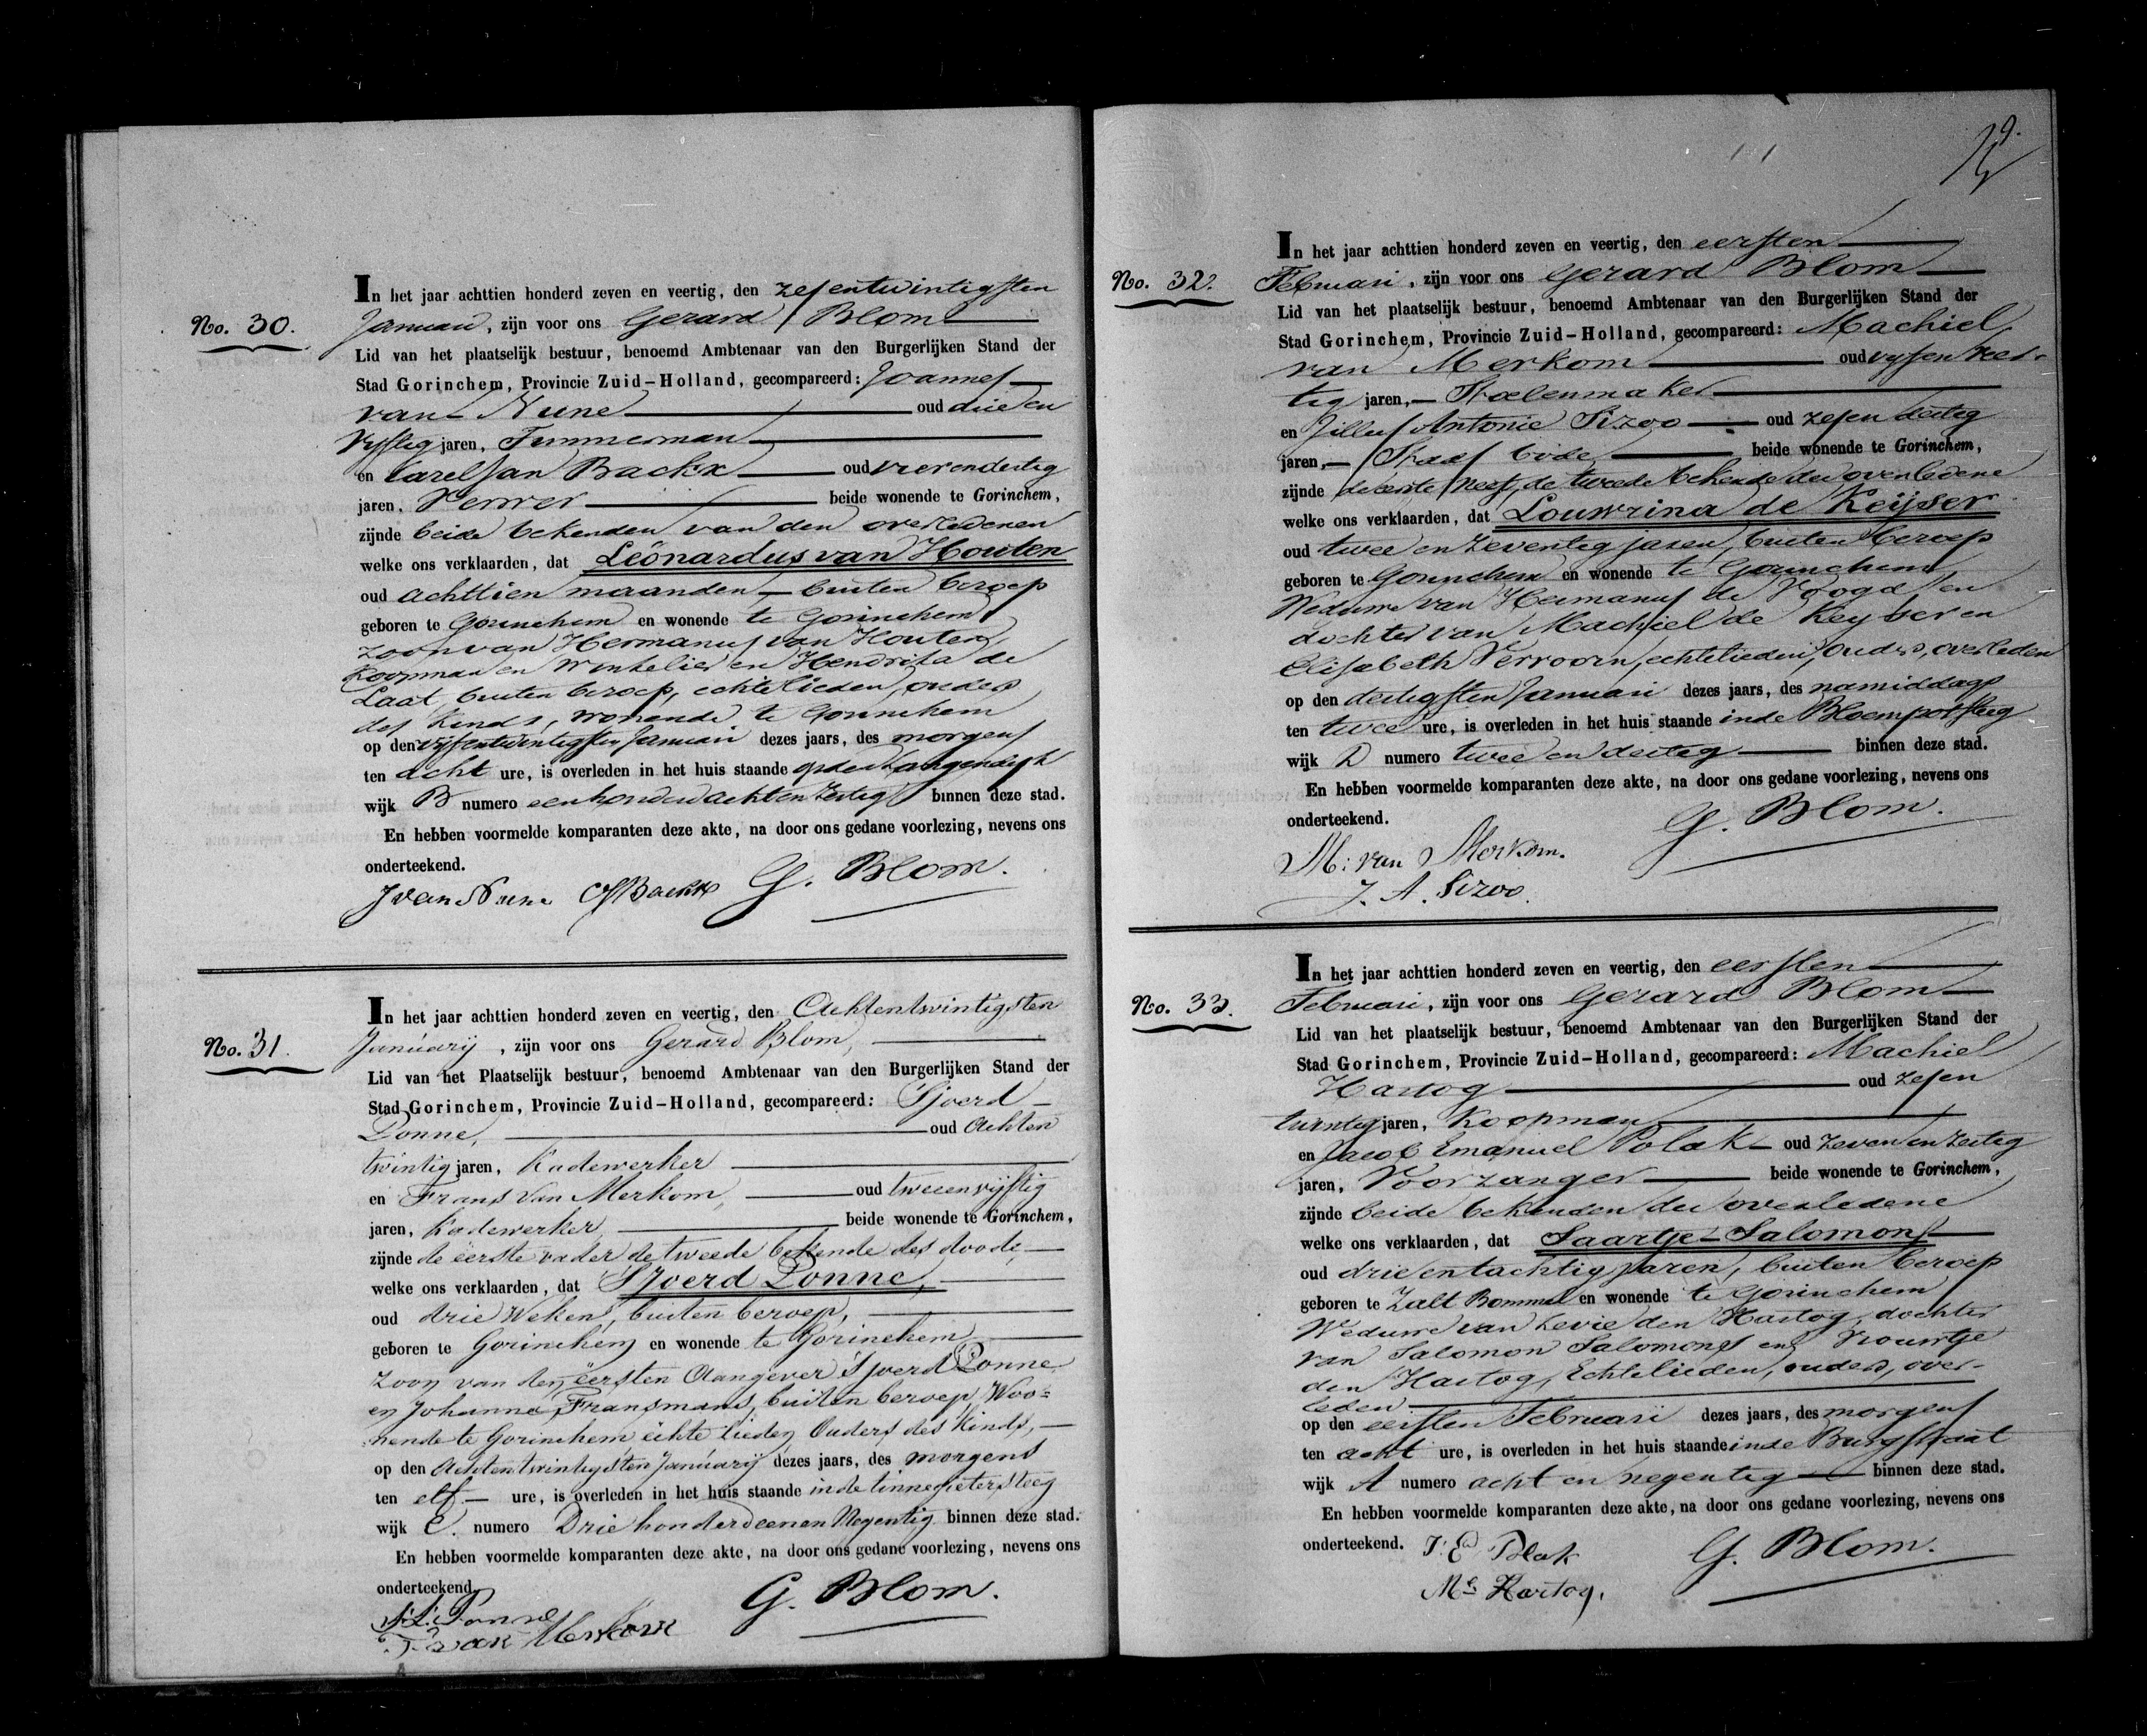 No. 30.
In het jaar achttien honderd zeven en veertig, den zesentwintigsten
Januari, zijn voor ons Gerard Blom
Lid van het plaatselijk bestuur, benoemd Ambtenaar van den Burgerlijken Stand der
Stad Gorinchem, Provincie Zuid-Holland, gecompareerd: Joannes
van Nune oud drie en
vyftig jaren, Timmerman
en Carel Jan Backx oud vierendertig
jaren, Verwer beide wonende te Gorinchem,
zijnde beide bekenden van den overledenen
welke ons verklaarden, dat Leonardus van Houten
oud achttien maanden, buiten beroep
geboren te Gorinchem en wonende te Gorinchem
zoon van Hermanus van Houten
Koopman en Winkelier en Hendrika de
Laat, buiten beroep, echtelieden, ouders
des kinds, wonende te Gorinchem
op den vyfentwintigsten Januari dezes jaars, des morgens
ten acht ure, is overleden in het huis staande op den Langendyk
wijk B numero eenhonderd achtenzestig binnen deze stad.
En hebben voormelde komparanten deze akte, na door ons gedane voorlezing, nevens ons
onderteekend.
J van Nune CJ Backx G. Blom.
No. 31.
In het jaar achttien honderd zeven en veertig, den Achtentwintigsten
Januarij, zijn voor ons Gerard Blom,
Lid van het Plaatselijk bestuur, benoemd Ambtenaar van den Burgerlijken Stand der
Stad Gorinchem, Provincie Zuid-Holland, gecompareerd: Sjoerd
Ponne, oud Achten
twintig jaren, Kadewerker
en Frans van Merkom, oud tweeenvijftig
jaren, Kadewerker, beide wonende te Gorinchem,
zijnde de eerste vader de tweede bekende des doode,
welke ons verklaarden, dat Sjoerd Ponne,
oud drie Weken, buiten beroep,
geboren te Gorinchem en wonende te Gorinchem
Zoon van den eersten Aangever Sjoerd Ponne
en Johanna Fransmans, buiten beroep, Woo=
nende te Gorinchem echte lieden Ouders des Kinds,
op den Achtentwintigsten Januarij dezes jaars, des morgens
ten elf ure, is overleden in het huis staande in de tinnegietersteeg
wijk C. numero Driehonderdeenen Negentig binnen deze stad.
En hebben voormelde komparanten deze akte, na door ons gedane voorlezing, nevens ons
onderteekend.
Ponne G. Blom.
F. van Merkom
No. 32.
In het jaar achttien honderd zeven en veertig, den eersten
Februari, zijn voor ons Gerard Blom
Lid van het plaatselijk bestuur, benoemd Ambtenaar van den Burgerlijken Stand der
Stad Gorinchem, Provincie Zuid-Holland, gecompareerd: Machiel
van Merkom oud vyfenveer-
tig jaren, Stoelenmaker
en Jillus Antonie Sizoo oud zesendertig
jaren, Stads bode beide wonende te Gorinchem,
zijnde de eerste neef, de tweede bekende der overledene
welke ons verklaarden, dat Louwrina de Keijser
oud twee en zeventig jaren, buiten beroep
geboren te Gorinchem en wonende te Gorinchem
Weduwe van Hermanus de Voogd en
dochter van Machiel de Keyser en
Elisabeth Vervoorn, echtelieden, ouders, overleden
op den dertigsten Januari dezes jaars, des namiddags
ten twee ure, is overleden in het huis staande in de Bloempotsteeg
wijk D numero twee en dertig binnen deze stad.
En hebben voormelde komparanten deze akte, na door ons gedane voorlezing, nevens ons
onderteekend.
G. Blom.
M: van Merkom.
J. A. Sizoo.
No. 33.
In het jaar achttien honderd zeven en veertig, den eersten
Februari, zijn voor ons Gerard Blom
Lid van het plaatselijk bestuur, benoemd Ambtenaar van den Burgerlijken Stand der
Stad Gorinchem, Provincie Zuid-Holland, gecompareerd: Machiel
Hartog oud zesen
twintig jaren, Koopman
en Jacob Emanuel Polak oud zevenenzestig
jaren, Voorzanger beide wonende te Gorinchem,
zijnde beide bekenden der overledene
welke ons verklaarden, dat Saartje Salomons
oud drieentachtig jaren, buiten beroep
geboren te Zalt Bommel en wonende te Gorinchem
Weduwe van Levie den Hartog, dochter
van Salomon Salomons en Vrouwtje
den Hartog, Echtelieden, ouders, over-
leden
op den eersten Februari dezes jaars, des morgens
ten acht ure, is overleden in het huis staande in de Burgstraat
wijk A numero acht en negentig binnen deze stad.
En hebben voormelde komparanten deze akte, na door ons gedane voorlezing, nevens ons
onderteekend. J. E Polak G. Blom.
Ml Hartog.